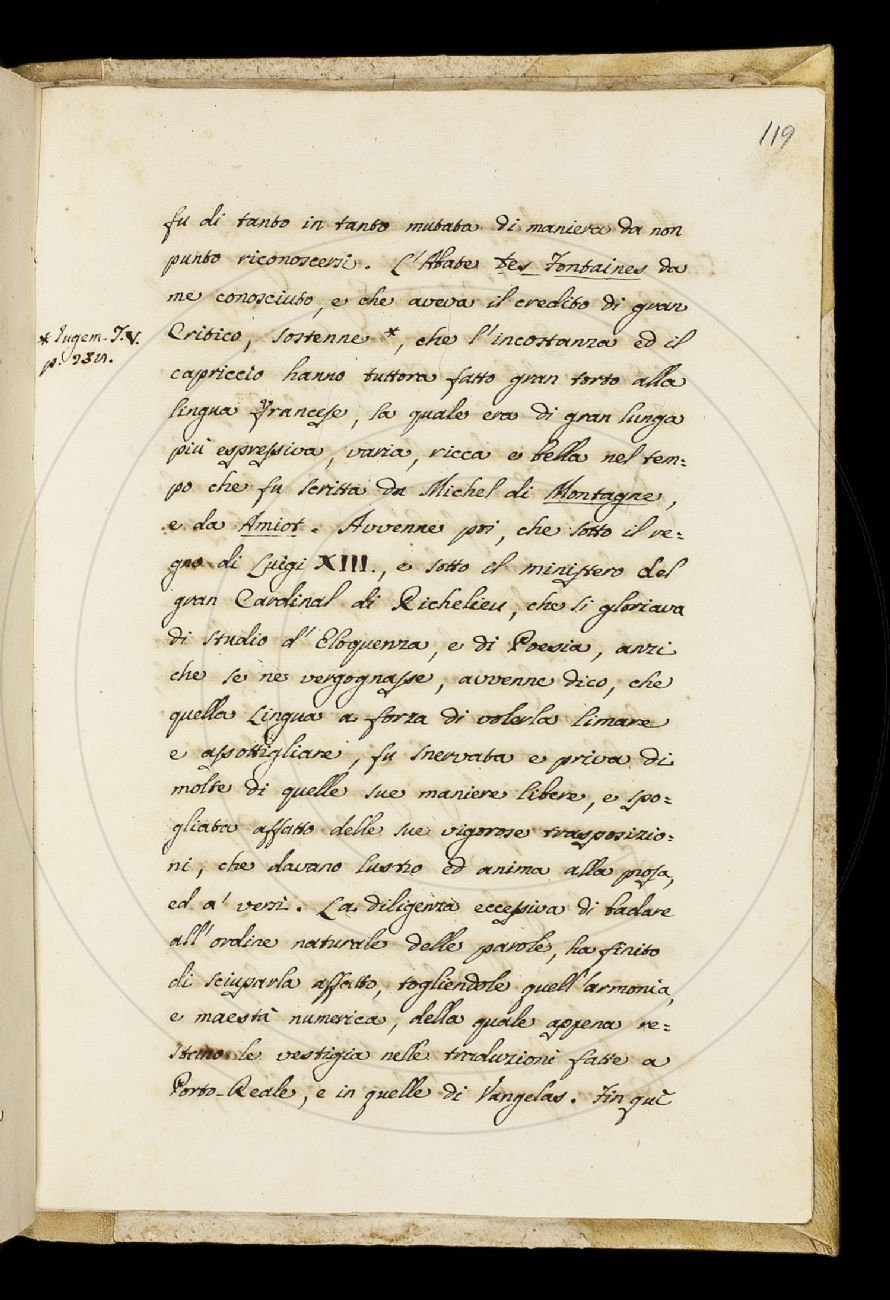 119
fu di tanto in tanto mutata di maniera da non
punto riconoscersi. L'Abate Des Fontaines da
me conosciuto, e che aveva il credito di gran
* Iugem. T. V.
p.
Critico, sostenne *, che l'incostanza ed il
capriccio hanno tuttora fatto gran torto alla
lingua Francese, la quale era di gran lunga
più espressiva, varia, ricca e bella nel tem=
po che fu scritta da Michel di Montagne,
e da Amiot. Avvenne poi, che sotto il re=
gno di Luigi XIII., e sotto il ministero del
gran Cardinal di Richelieu, che si gloriava
di studio d'Eloquenza, e di Poesia, anzi
che se ne vergognasse, avvenne dico, che
quella Lingua a forza di volerla limare
e assottigliare, fu snervata e priva di
molte di quelle sue maniere libere, e spo=
gliata affatto delle sue vigorose trasposizio=
ni, che davano lustro ed anima alla prosa,
ed a' versi. La diligenza eccessiva di badare
all'ordine naturale delle parole, ha finito
di sciuparla affatto, togliendole quell'armonia,
e maestà numerica, della quale appena re=
stano le vestigia nelle traduzioni fatte a
Porto-Reale, e in quelle di Vangelas. Fin quì